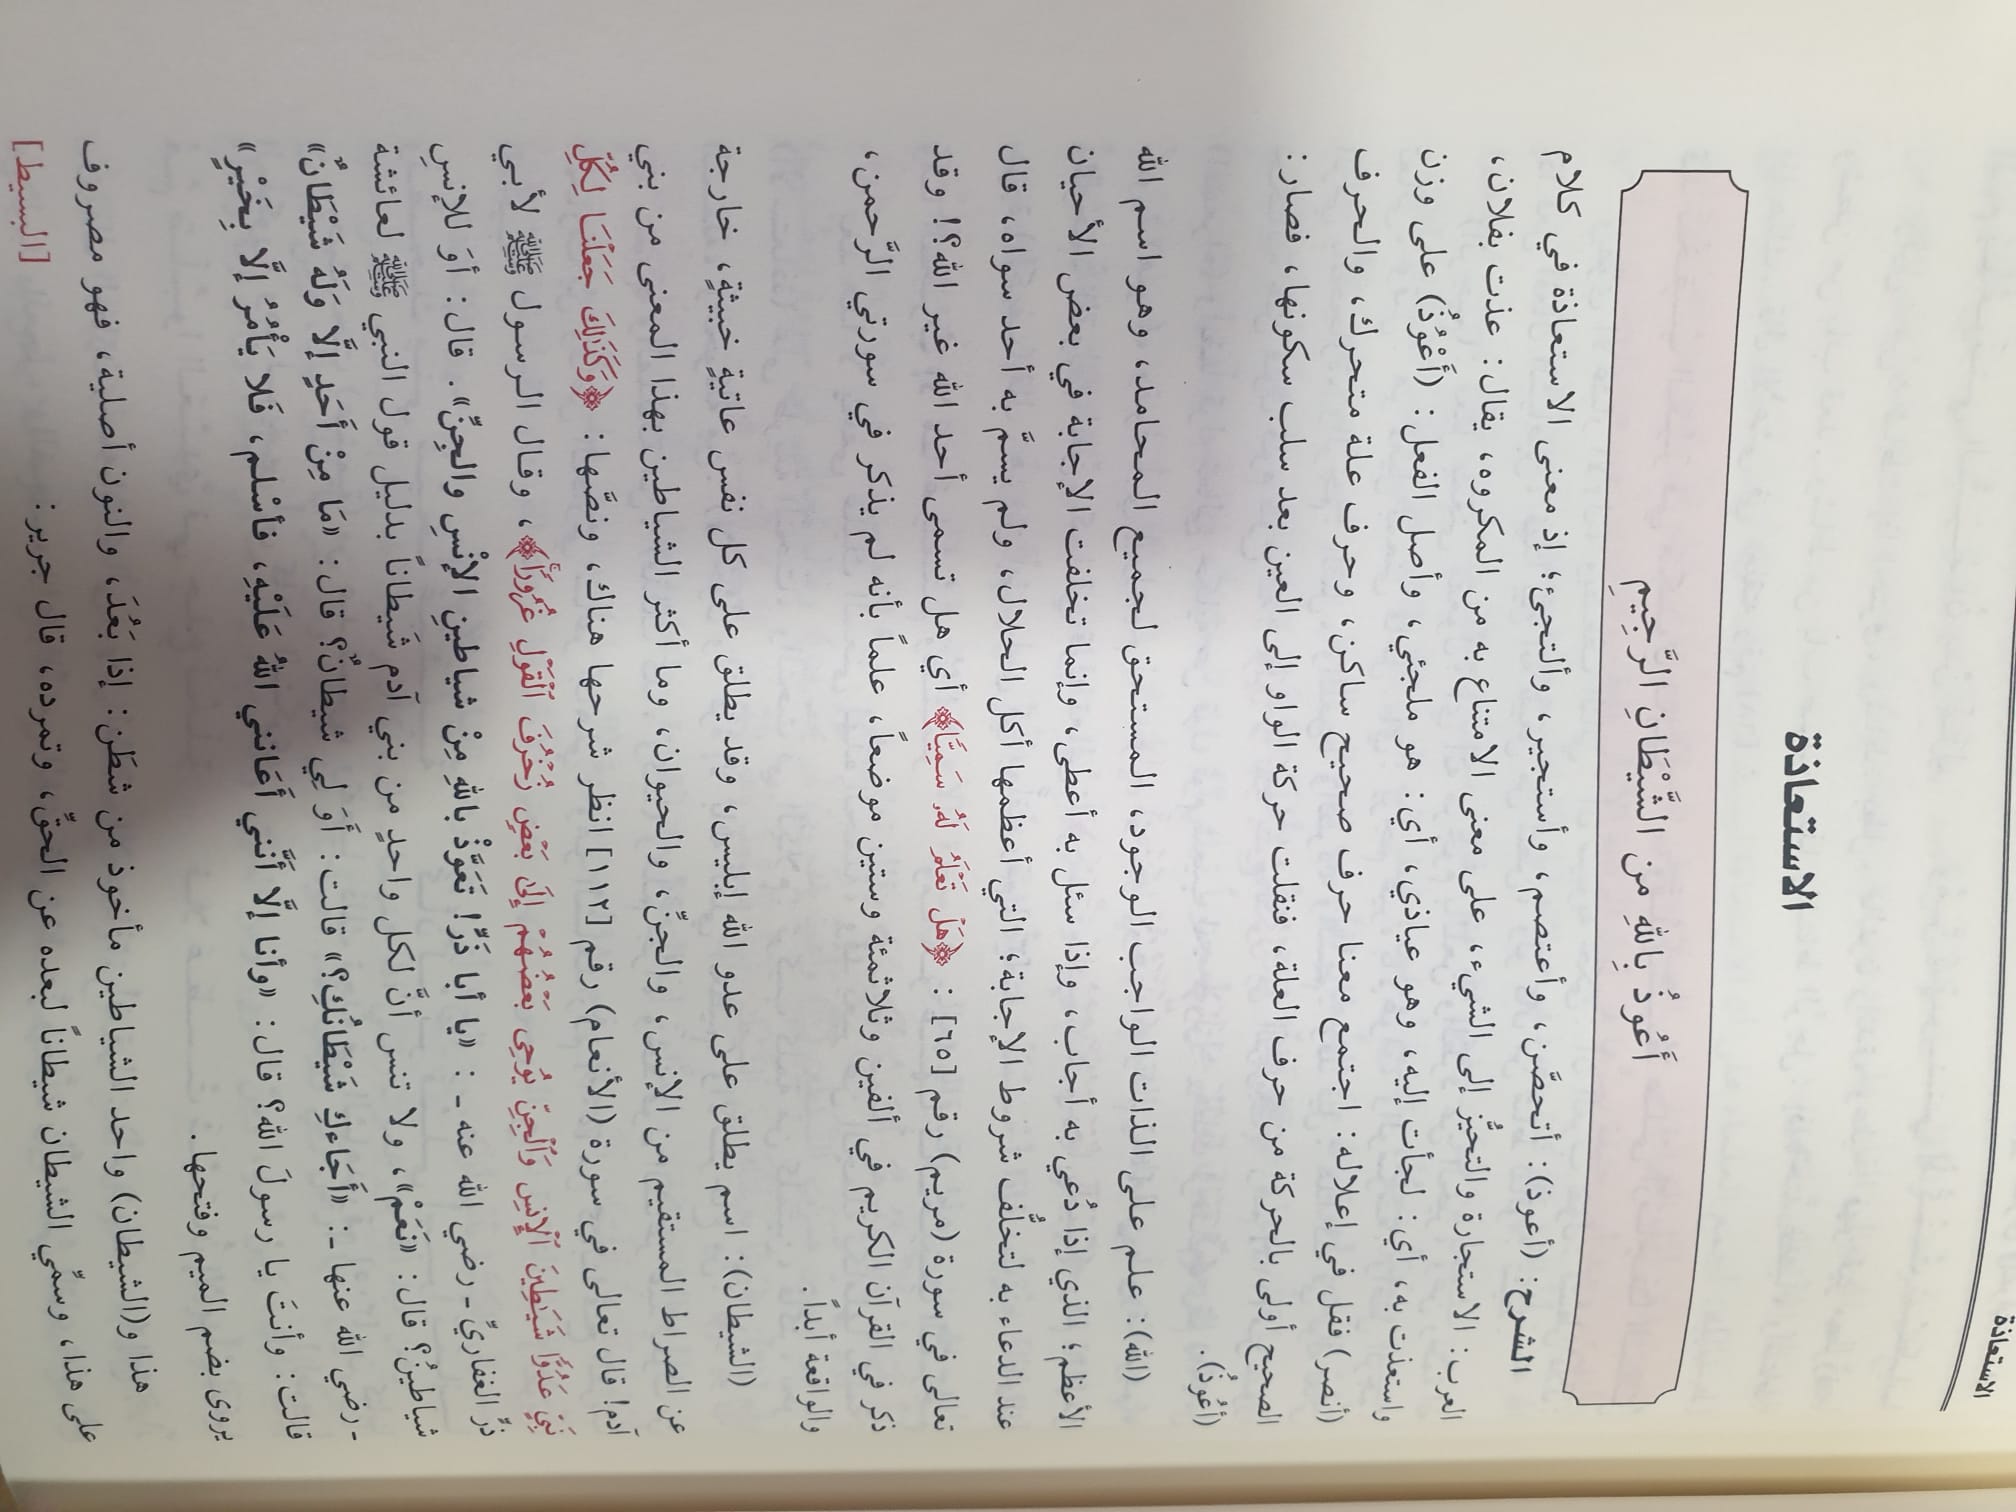 الاستعاذة
الاستعاذة
أَعُوذُ بِاللهِ مِنَ الشَّيْطَانِ الرَّجِيمِ
الشرح: (أعوذ): أتحصَّن، وأعتصم، وأستجير، وألتجئ؛ إذ معنى الاستعاذة في كلام
العرب: الاستجارة والتحيُّز إلى الشيء، على معنى الامتناع به من المكروه، يقال: عذت بفلان،
واستعذت به، أي: لجأت إليه، وهو عياذي، أي: هو ملجئي، وأصل الفعل: (أَعْوُذُ) على وزن
(أنصر) فقل في إعلاله: اجتمع معنا حرف صحيح ساكن، وحرف علة متحرك، والحرف
الصحيح أولى بالحركة من حرف العلة، فنقلت حركة الواو إلى العين بعد سلب سكونها، فصار:
(أَعُوذُ).
(الله): علم على الذات الواجب الوجود، المستحق لجميع المحامد، وهو اسم الله
الأعظم؛ الذي إذا دُعي به أجاب، وإذا سئل به أعطى، وإنما تخلفت الإجابة في بعض الأحيان
عند الدعاء به لتخلُّف شروط الإجابة؛ التي أعظمها أكل الحلال، ولم يسمَّ به أحد سواه، قال
تعالى في سورة (مريم) رقم [٦٥] : ﴿هَلْ تَعْلَمُ لَهُ سَمِيًّا﴾ أي هل تسمى أحد الله غير الله؟! وقد
ذكر في القرآن الكريم في ألفين وثلاثمئة وستين موضعاً، علماً بأنه لم يذكر في سورتي الرَّحمن،
والواقعة أبداً.
(الشيطان): اسم يطلق على عدو الله إبليس، وقد يطلق على كل نفس عاتيةٍ خبيثةٍ، خارجة
عن الصراط المستقيم من الإنس، والجنِّ، والحيوان، وما أكثر الشياطين بهذا المعنى من بني
آدم! قال تعالى في سورة (الأنعام) رقم [١١٢] انظر شرحها هناك، ونصَّها: ﴿وَكَذَٰلِكَ جَعَلْنَا لِكُلِّ
نَبِيٍّ عَدُوًّا شَيَاطِينَ الْإِنسِ وَالْجِنِّ يُوحِي بَعْضُهُمْ إِلَىٰ بَعْضٍ زُخْرُفَ الْقَوْلِ غُرُورًا﴾، وقال الرسول ﷺ لأبي
ذرٍّ الغفاريِّ ـ رضي الله عنه ـ : «يا أبا ذَرٍّ! تَعَوَّذْ باللهِ مِنْ شياطينِ الإنْسِ والجِنِّ». قال: أوَ للإنسِ
شياطينُ؟ قال: «نَعَمْ»، ولا تنس أنَّ لكل واحدٍ من بني آدم شَيطاناً بدليل قول النبي ﷺ لعائشة
ـ رضي الله عنها ـ: «أَجَاءَكِ شَيْطَانُكِ؟» قالت: أَوَلي شيطانٌ؟ قال: «مَا مِنْ أَحَدٍ إلَّا وَلَهُ شَيْطَانٌ»
قالت: وأنتَ يا رسولَ الله؟ قال: «وأنا إلَّا أنَّني أَعَانني اللهُ عَلَيْهِ، فأسْلم، فَلا يَأْمُرُ إلَّا بِخَيْرٍ»
يروى بضم الميم وفتحها.
هذا و(الشيطان) واحد الشياطين مأخوذ من شَطَن: إذا بَعُدَ، والنون أصلية، فهو مصروف
على هذا، وسمِّي الشيطان شيطاناً لبعده عن الحقِّ، وتمرده، قال جرير: [البسيط]